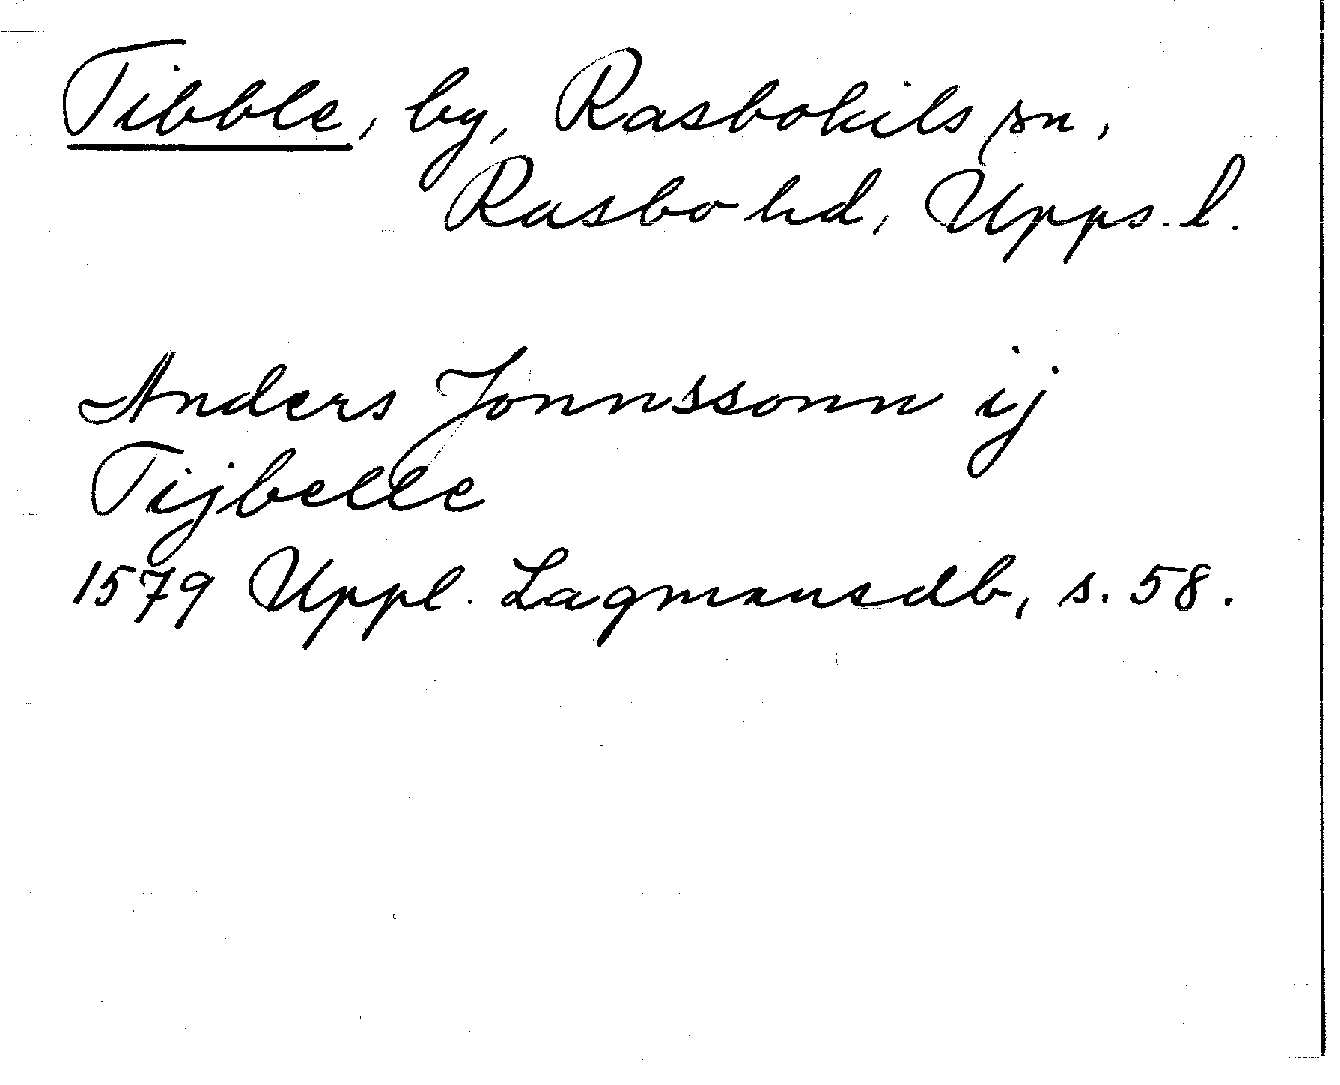 Tibble, by, Rasbokils sn,
Rasbo hd, Upps. l.
Anders Jonnssonn ij
Tijbelle
1579 Uppl. Lagmansdb, s. 58.